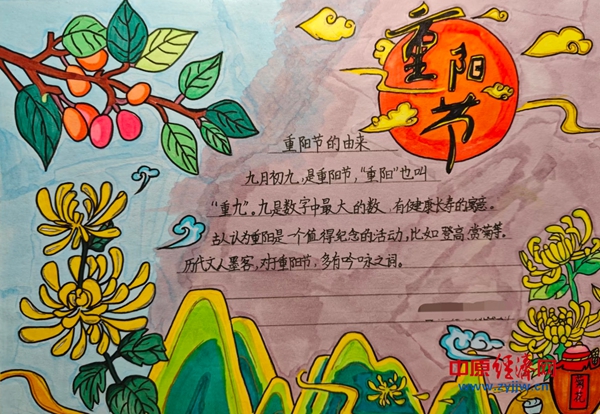 重阳节
重阳节的由来
九月初九,是重阳节,“重阳”也叫
“重九”。九是数字中最大的数,有健康长寿的寓意。
古人认为重阳是一个值得纪念的活动,比如登高、赏菊等。
历代文人墨客,对于重阳节,多有吟咏之词。
中原经济网
www.zyjjw.cn